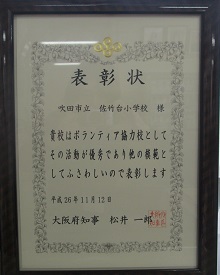 表彰状
吹田市立 佐竹台小学校 様
貴校はボランティア協力校として
その活動が優秀であり他の模範
としてふさわしいので表彰します
平成26年11月12日
大阪府知事 松井 一郎